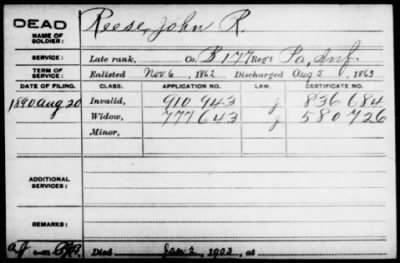 DEAD
NAME OF SOLDIER: Reese, John R.
SERVICE: Late rank, Co. B 177 Reg't Pa, Inf.
TERM OF SERVICE: Enlisted Nov 6, 1862 Discharged Aug 5, 1863
DATE OF FILING. CLASS. APPLICATION NO. LAW. CERTIFICATE NO.
1890 Aug 20 Invalid, 910 943 J 836 684
Widow, 777 643 J 580 726
Minor,
ADDITIONAL SERVICES:
REMARKS:
Died Jan 2, 1903, at